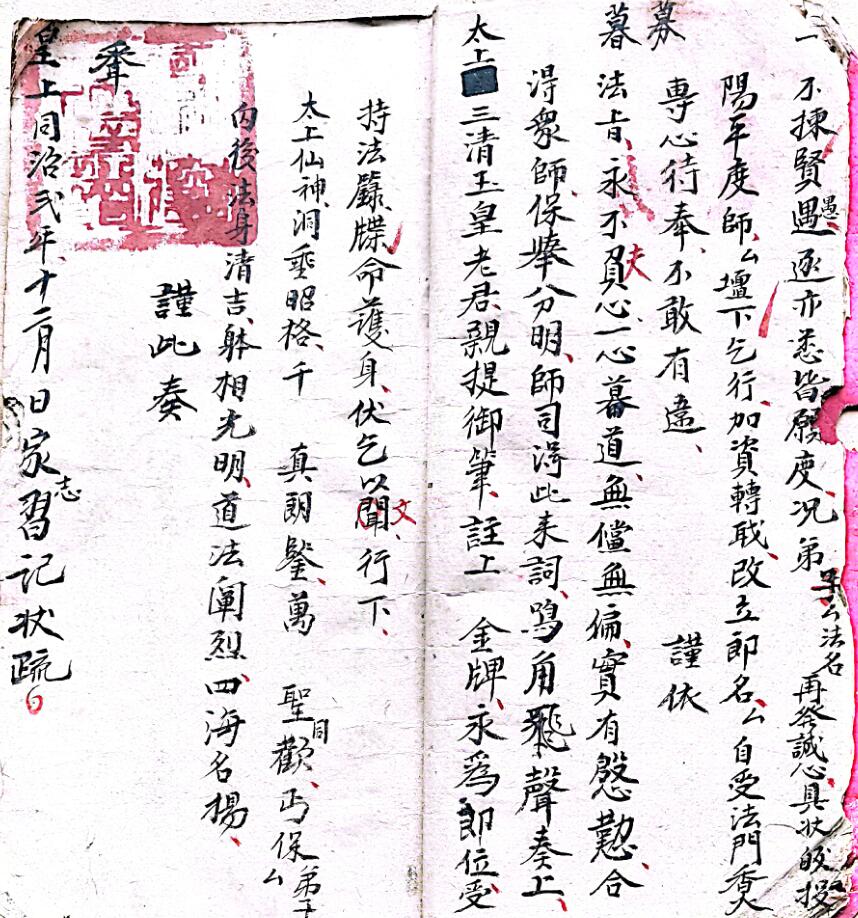 一不揀賢遇愚逐亦悉皆願度况弟子厶法名再發誠心具状皈投
陽平度師厶壇下乞行加資轉職改立郎名厶自受法門香火
專心待奉不敢有違謹依
募暮法旨永不負夫心一心暮道無儻無偏實有慇懃合
淂衆師保舉分明師司淂此来詞鸣角飛聲奏上
太上三清玉皇老君親提御筆註上金牌永爲郎位受
持法籙牒命護身伏乞以聞文行下
太上仙神洞垂昭格千真朗鑒萬聖同歡丐保弟子厶
向後法身清吉躰相光明道法闡烈四海名揚
謹此奏
皇上同治弐年十二月日家習志記状疏